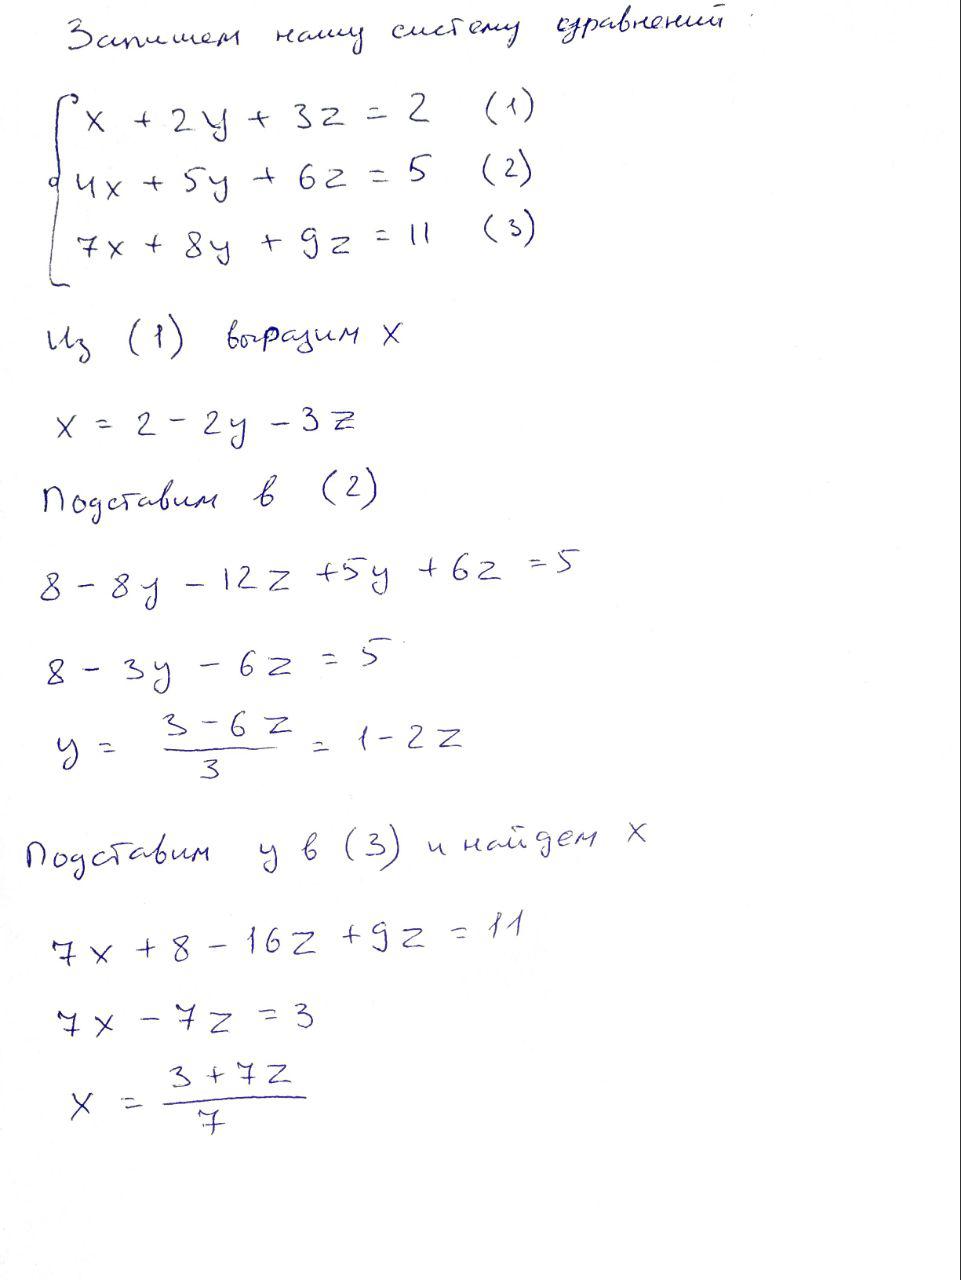 Запишем нашу систему уравнений:
x + 2y + 3z = 2 (1)
4x + 5y + 6z = 5 (2)
7x + 8y + 9z = 11 (3)
Из (1) выразим x
x = 2 - 2y - 3z
Подставим в (2)
8 - 8y - 12z + 5y + 6z = 5
8 - 3y - 6z = 5
y = \frac{3 - 6z}{3} = 1 - 2z
Подставим y в (3) и найдем x
7x + 8 - 16z + 9z = 11
7x - 7z = 3
x = \frac{3 + 7z}{7}